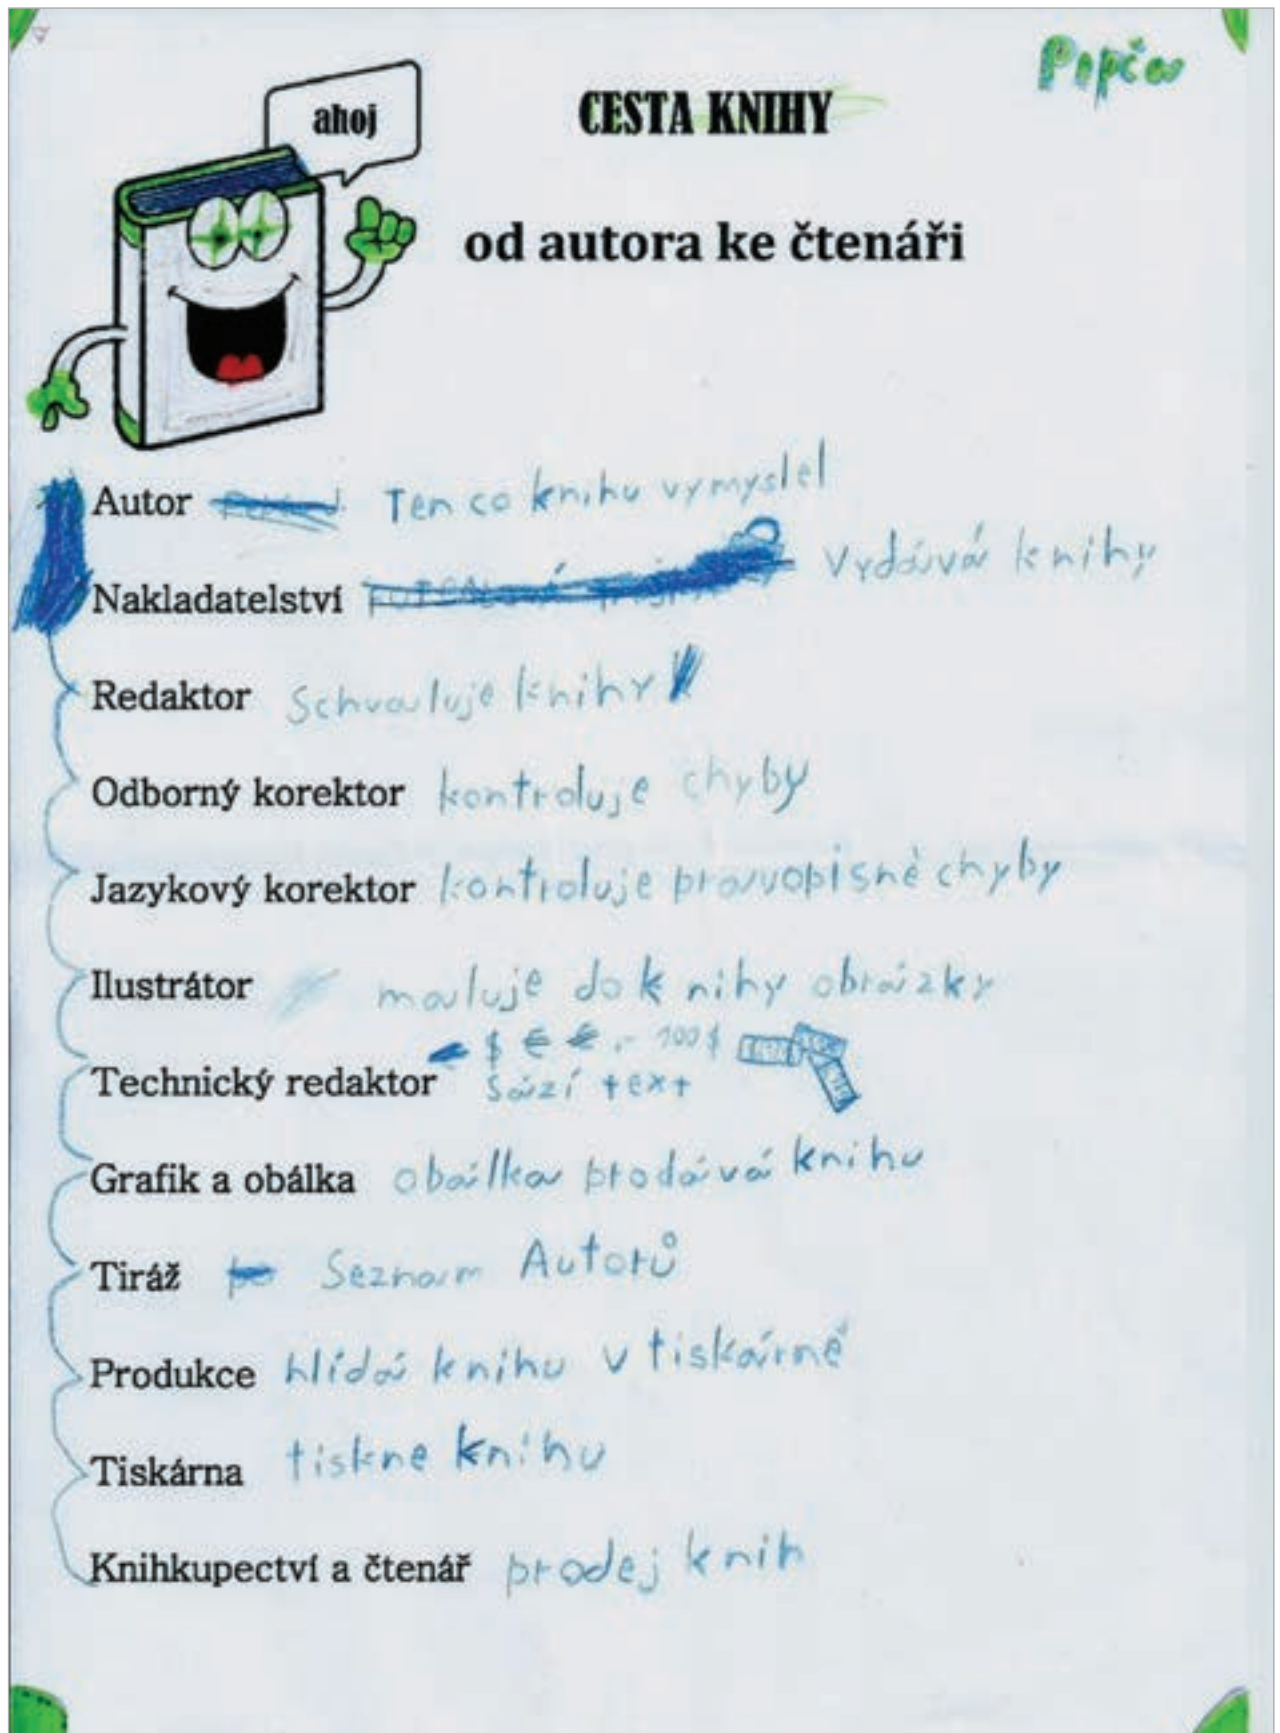 Pepča
ahoj
CESTA KNIHY
od autora ke čtenáři
Autor Ten co knihu vymyslel
Nakladatelství Vydává knihy
Redaktor Schvaluje knihy
Odborný korektor kontroluje chyby
Jazykový korektor kontroluje pravopisné chyby
Ilustrátor maluje do knihy obrázky
$ € € .- 100 $
Technický redaktor Sází text
Grafik a obálka obálka prodává knihu
Tiráž Seznam Autorů
Produkce hlídá knihu v tiskárně
Tiskárna tiskne knihu
Knihkupectví a čtenář prodej knih